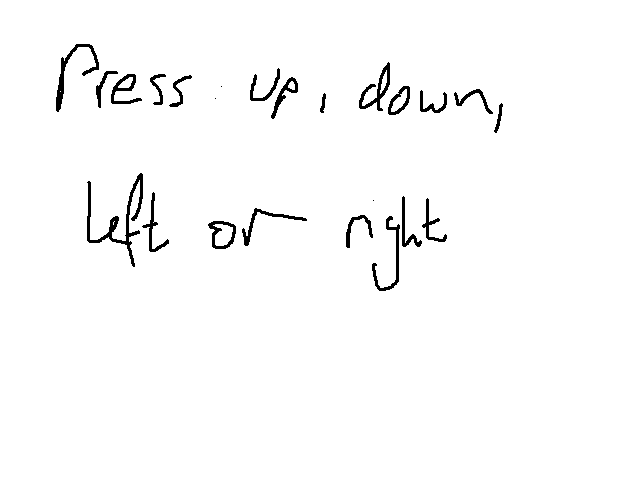 Press up, down,
left or right